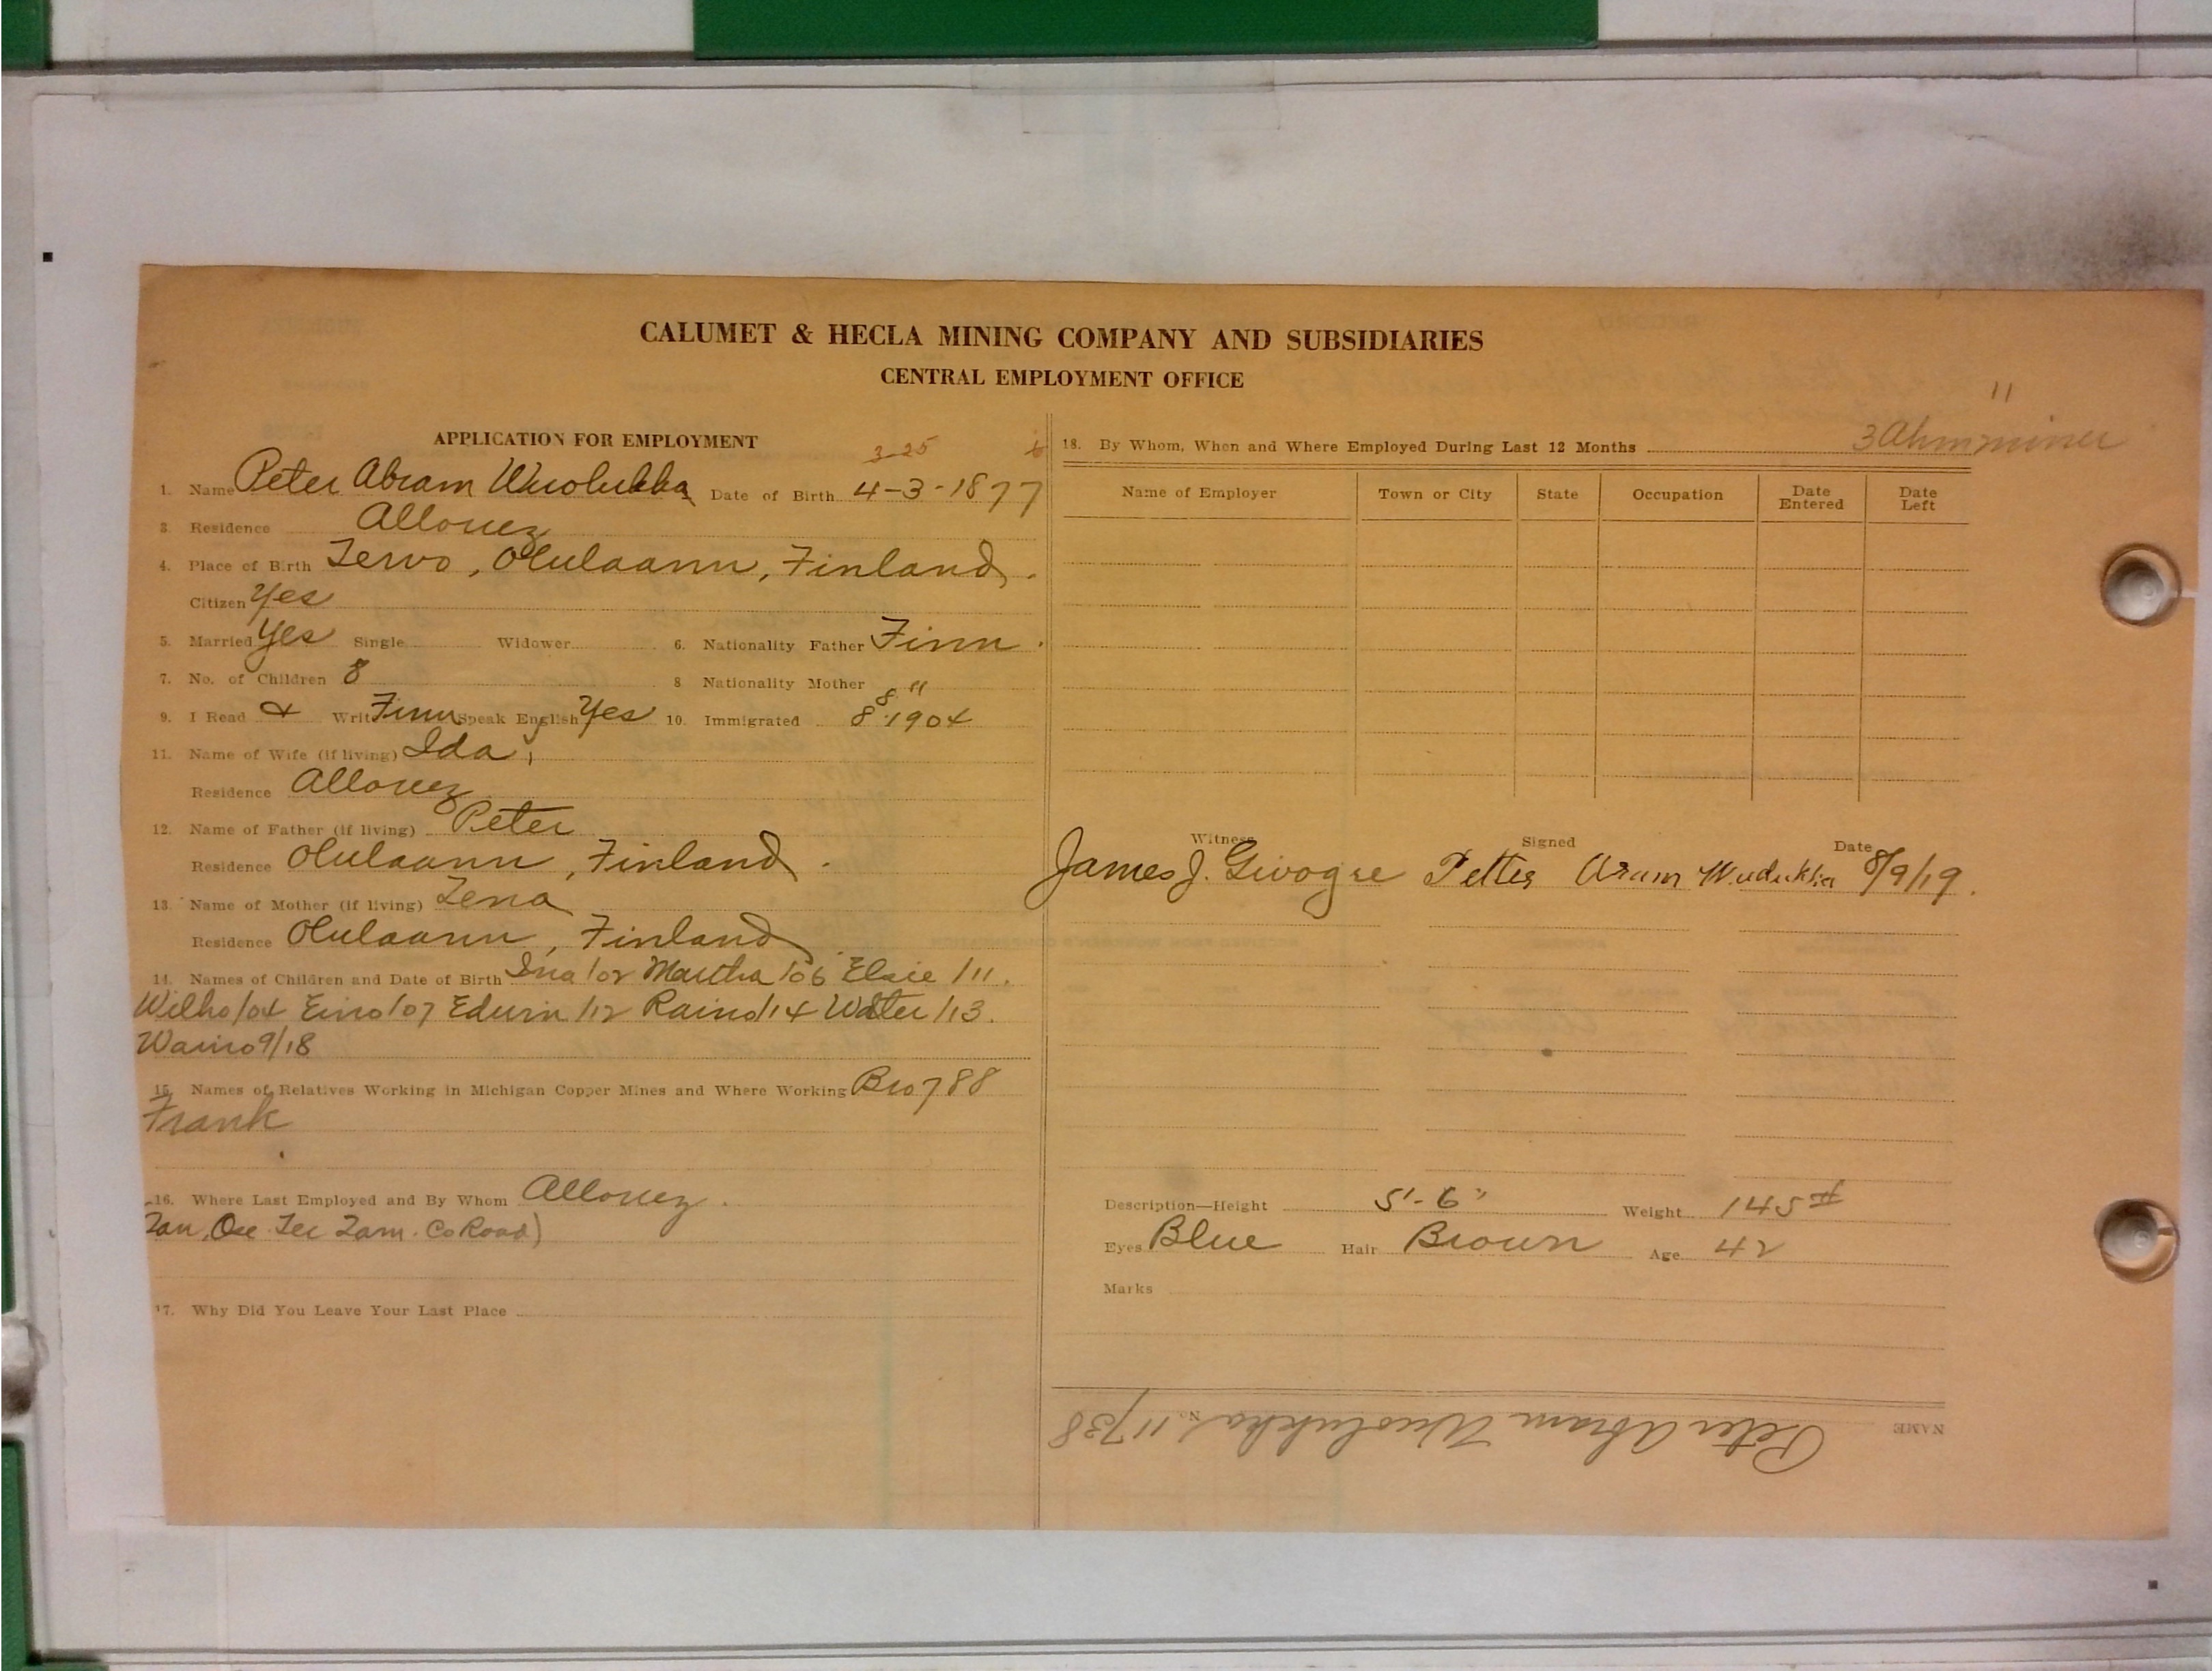 CALUMET & HECLA MINING COMPANY AND SUBSIDIARIES
CENTRAL EMPLOYMENT OFFICE
11
APPLICATION FOR EMPLOYMENT
3-25 6
1. Name Peter Abram Wuolukka Date of Birth 4-3-1877
3. Residence Allouez
4. Place of Birth Tervo, Olulaann, Finland.
Citizen Yes
5. Married Yes Single Widower 6. Nationality Father Finn.
7. No. of Children 8 8 Nationality Mother "
9. I Read & Writ Finn Speak English Yes 10. Immigrated 8 8.1904
11. Name of Wife (if living) Ida,
Residence Allouez
12. Name of Father (if living) Peter
Residence Olulaann, Finland.
13. Name of Mother (if living) Lena
Residence Olulaann, Finland
14. Names of Children and Date of Birth Ina/02 Martha/06 Elsie/11.
Wilho/04 Eino/07 Edwin/12 Raino/14 Walter/13.
Waino 9/18
15. Names of Relatives Working in Michigan Copper Mines and Where Working Bro 788
Frank
16. Where Last Employed and By Whom Allouez.
Tam. Co Road)
17. Why Did You Leave Your Last Place
18. By Whom, When and Where Employed During Last 12 Months 3 Ahm miner
Name of Employer Town or City State Occupation Date Entered Date Left
Witness Signed Date
James J. Petter Aram 8/9/19.
Description—Height 5'-6" Weight 145#
Eyes Blue Hair Brown Age 42
Marks
NAME Peter Abram Wuolukka No. 11738